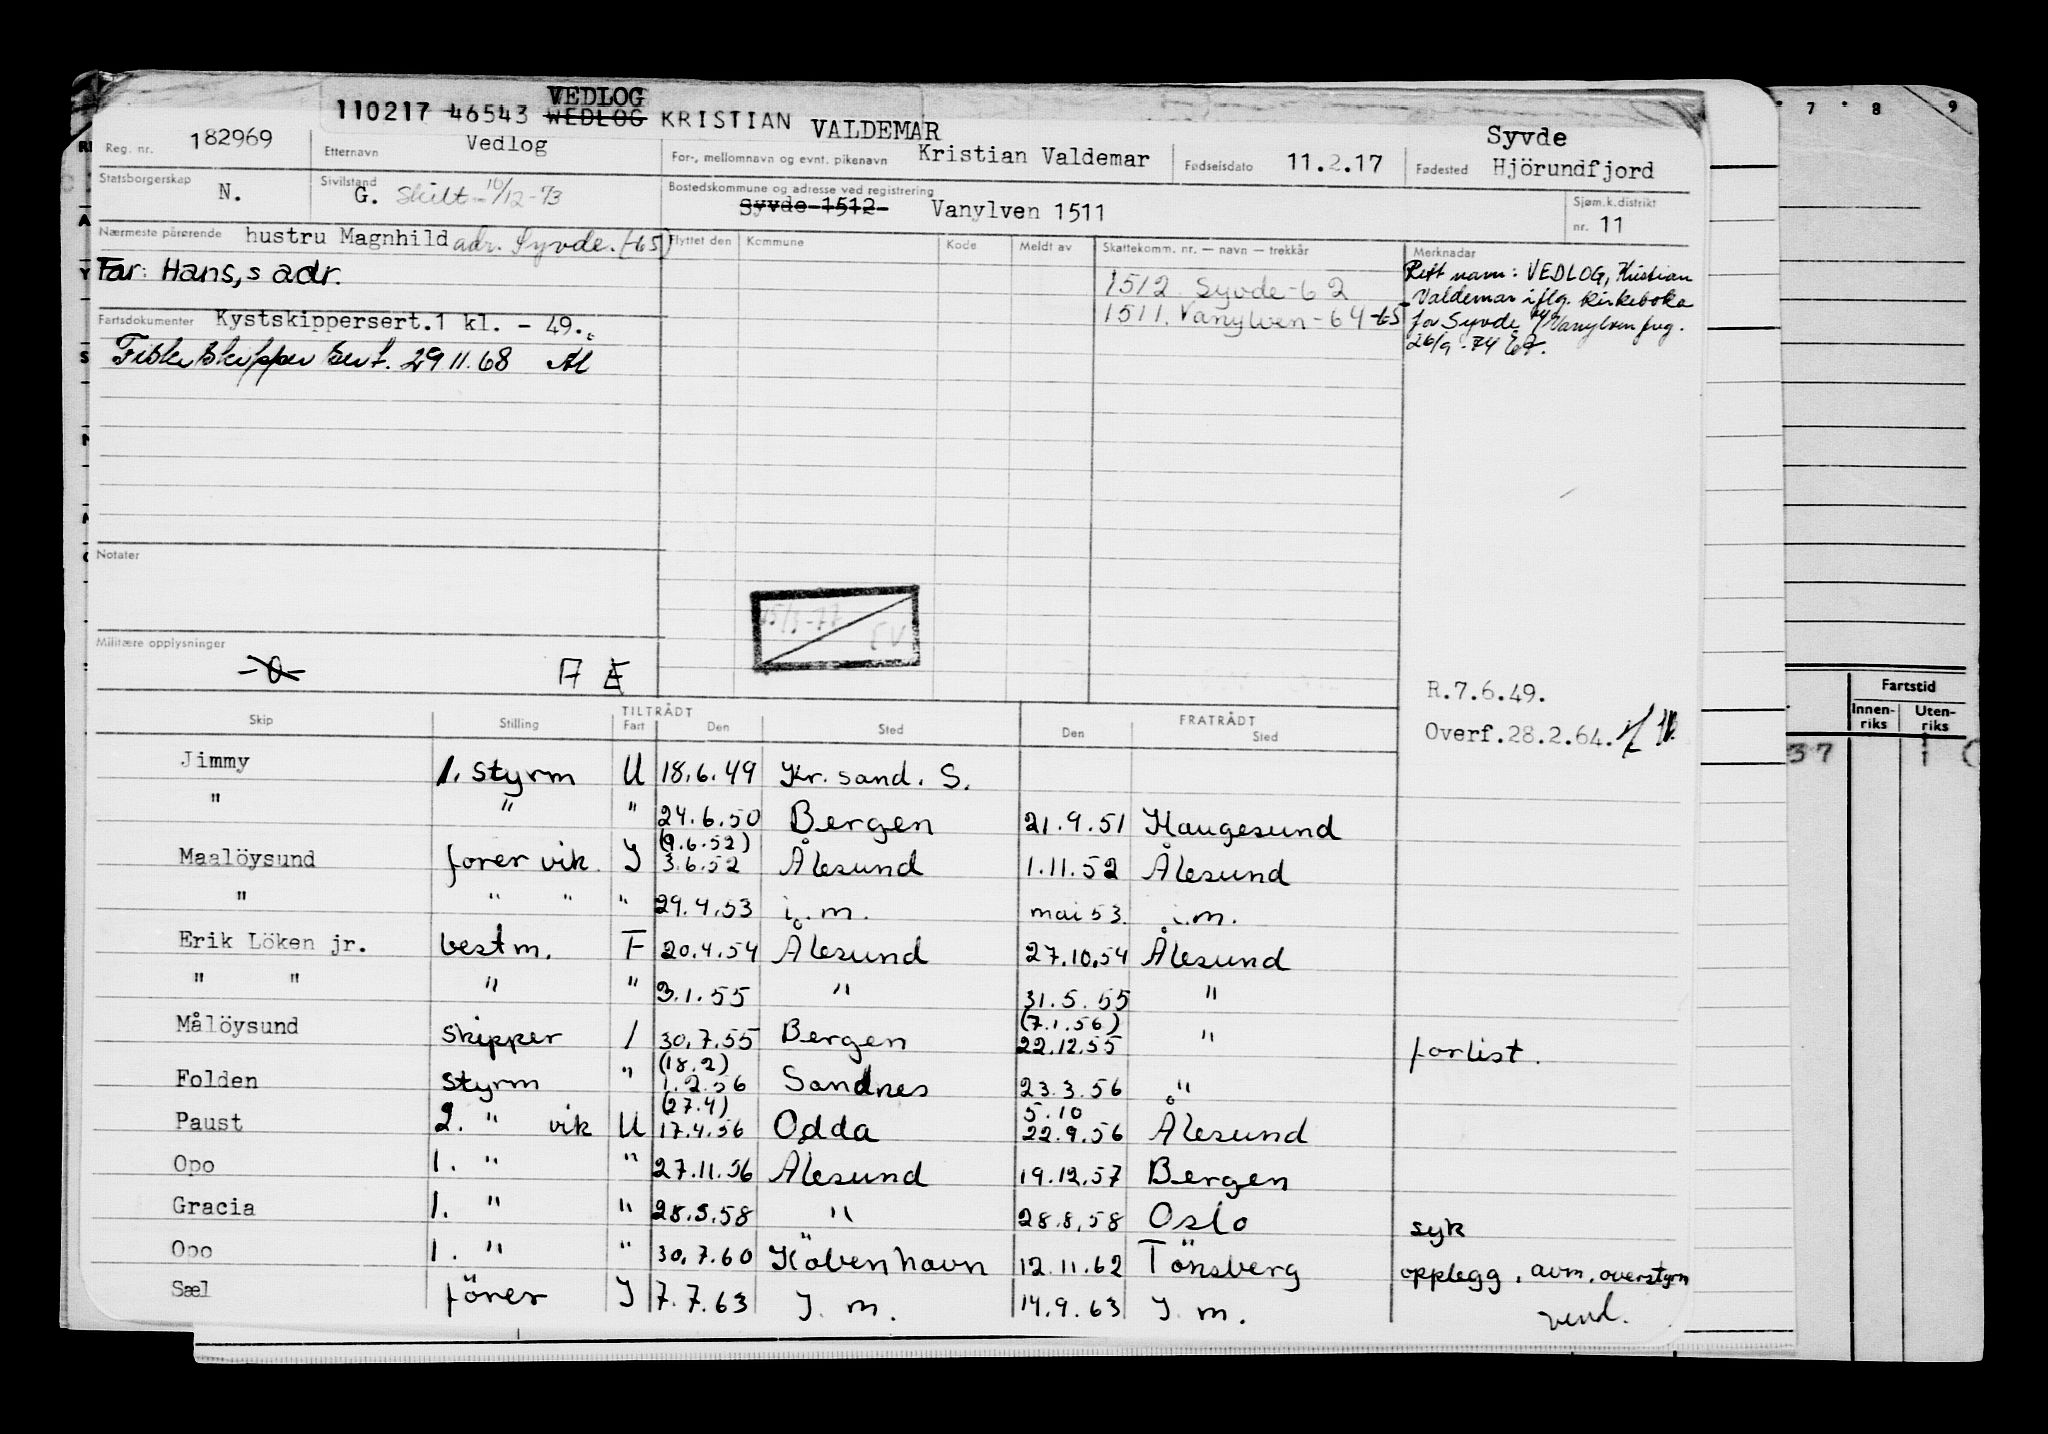 VEDLOG
110217 46543 WEDLOG KRISTIAN VALDEMAR
Reg. nr. 182969 Etternavn Vedlog For-, mellomnavn og evnt. pikenavn Kristian Valdemar Fødselsdato 11.2.17 Syvde
Fødested Hjörundfjord
Statsborgerskap N. Sivilstand G. Skilt 10/12-73 Bostedskommune og adresse ved registrering Syvde 1512 Vanylven 1511 Sjøm.k.distrikt nr. 11
Nærmeste pårørende hustru Magnhild adr. Syvde. (-65) Flyttet den Kommune Kode Meldt av Skattekomm. nr. — navn — trekkår Merknadar
Far: Hans, s adr.
1512 Syvde-62
1511. Vanylven-64-65
Rett navn: VEDLOG, Kristian
Valdemar iflg. kirkeboka
for Syvde Vanylven
26/9-74
Fartsdokumenter Kystskippersert.1 kl. - 49.
Fiskeskipper Sert. 29.11.68 Al
Notater
Militære opplysninger
-0-
R.7.6.49.
Overf.28.2.64.
Skip Stilling TILTRÅDT Fart Den Sted FRATRÅDT Den Sted
Jimmy 1. styrm U 18.6.49 Kr.sand. S.
" " " 24.6.50 Bergen 21.9.51 Haugesund
(9.6.52)
Maalöysund fører vik. I 3.6.52 Ålesund 1.11.52 Ålesund
" " " " 29.4.53 i.m. mai 53. i.m.
Erik Löken jr. bestm. F 20.4.54 Ålesund 27.10.54 Ålesund
" " " " 3.1.55 " 31.5.55 "
(7.1.56)
Målöysund skipper I 30.7.55 Bergen 22.12.55 " forlist.
(18.2)
Folden styrm " 1.2.56 Sandnes 23.3.56 "
(27.4) 5.10
Paust 2. " vik U 17.4.56 Odda 22.9.56 Ålesund
Opo 1. " " 27.11.56 Ålesund 19.12.57 Bergen
Gracia 1. " " 28.3.58 " 28.8.58 Oslo syk
Opo 1. " " 30.7.60 Köbenhavn 12.11.62 Tönsberg opplegg. avm. overstyrm
Sæl förer I 7.7.63 I. m. 14.9.63 I. m. vend.
7 8 9
Fartstid
Innen-riks Uten-riks
37